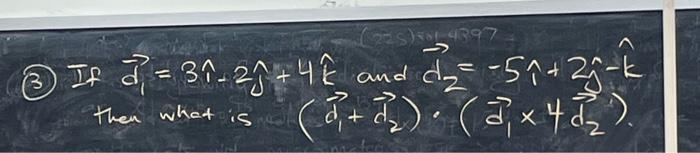 ③ If d⃗₁ = 3î - 2ĵ + 4k̂ and d⃗₂ = -5î + 2ĵ - k̂
then what is (d⃗₁ + d⃗₂) · (d⃗₁ × 4d⃗₂).